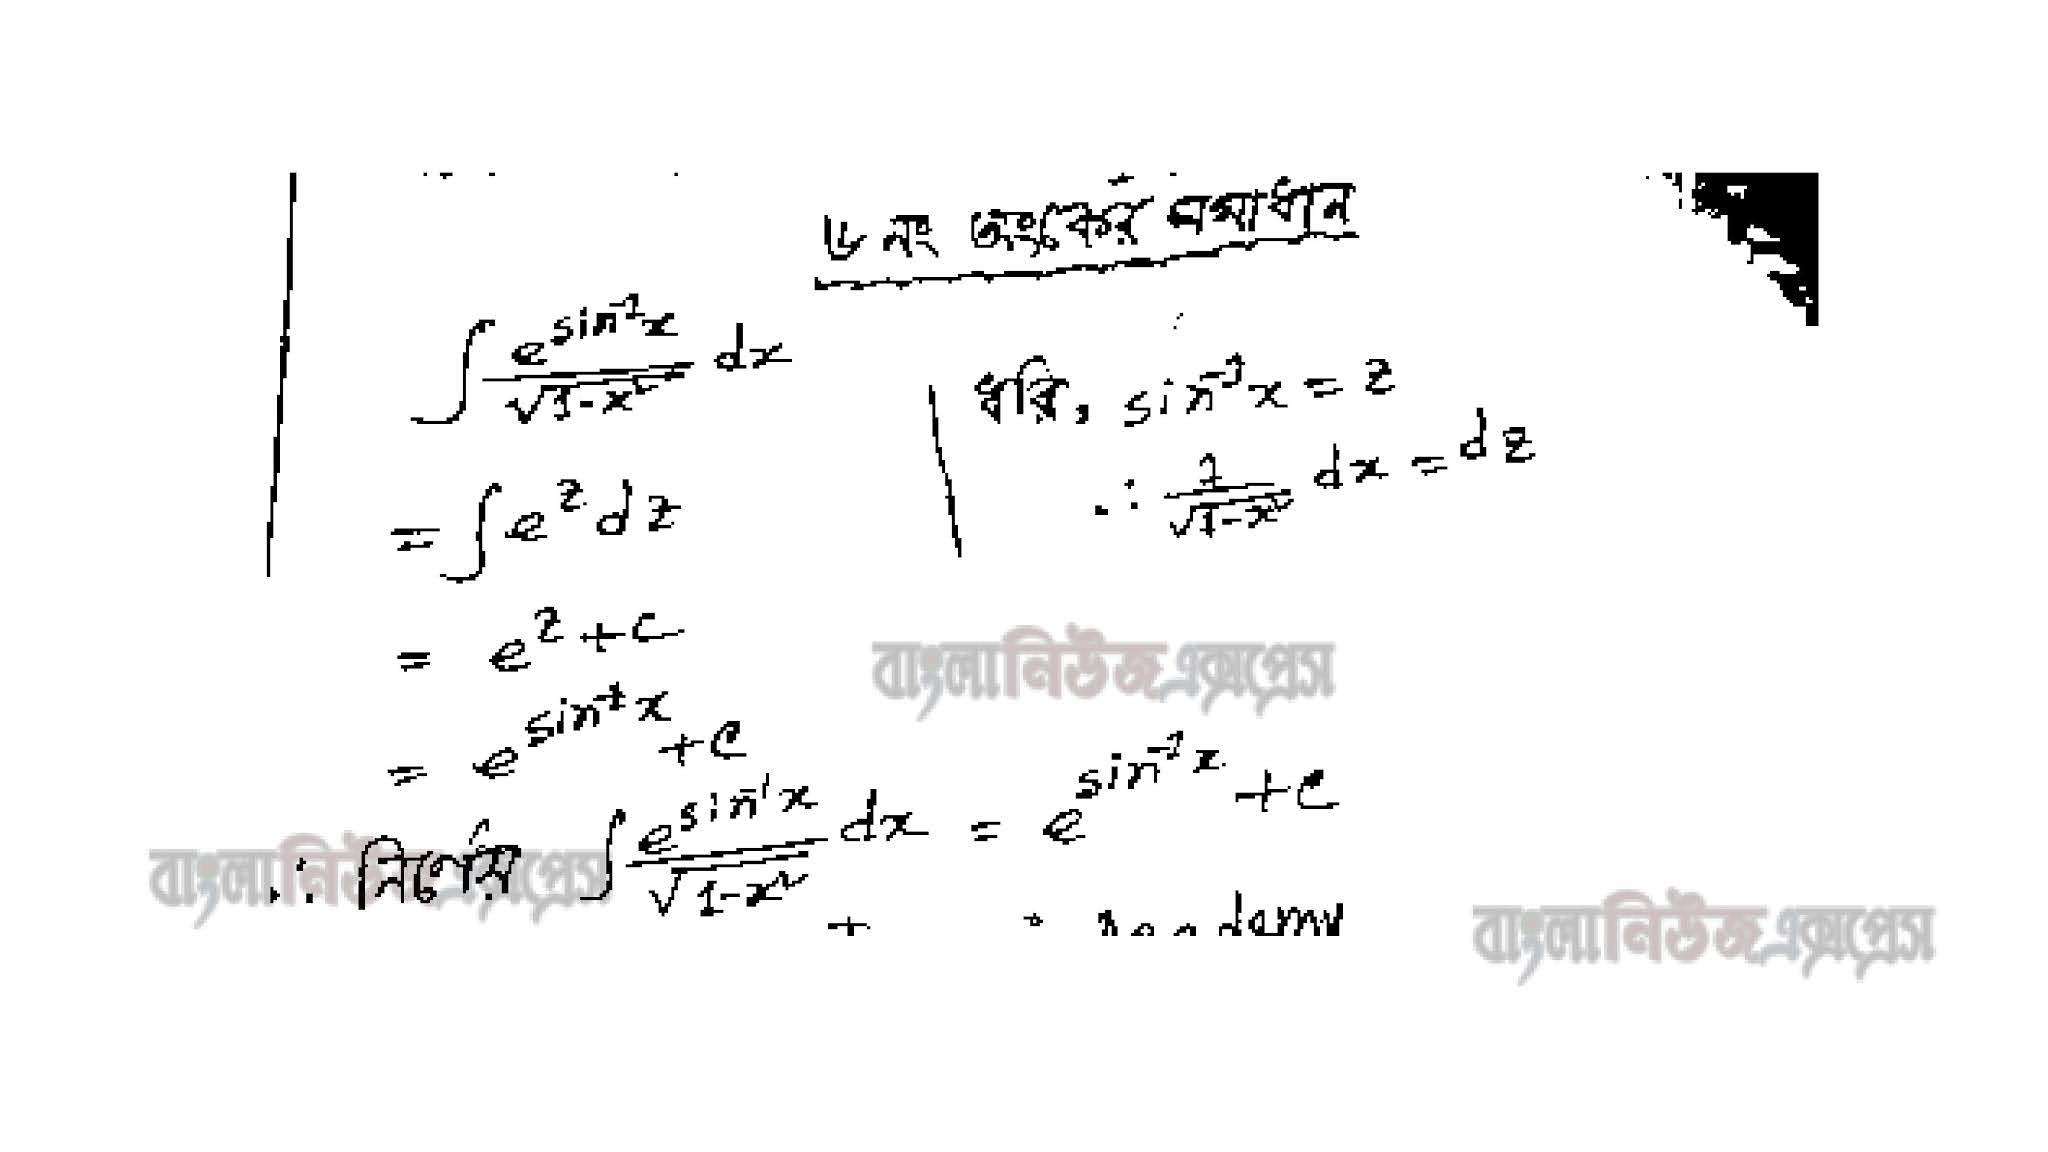 ৬ নং অংকের সমাধান
∫ e^{sin⁻¹x}/√(1-x²) dx
ধরি, sin⁻¹x = z
∴ 1/√(1-x²) dx = dz
= ∫ e^z dz
= e^z + c
= e^{sin⁻¹x} + c
∴ নির্ণেয় ∫ e^{sin⁻¹x}/√(1-x²) dx = e^{sin⁻¹x} + c
বাংলানিউজএক্সপ্রেস
বাংলানিউজএক্সপ্রেস
বাংলানিউজএক্সপ্রেস